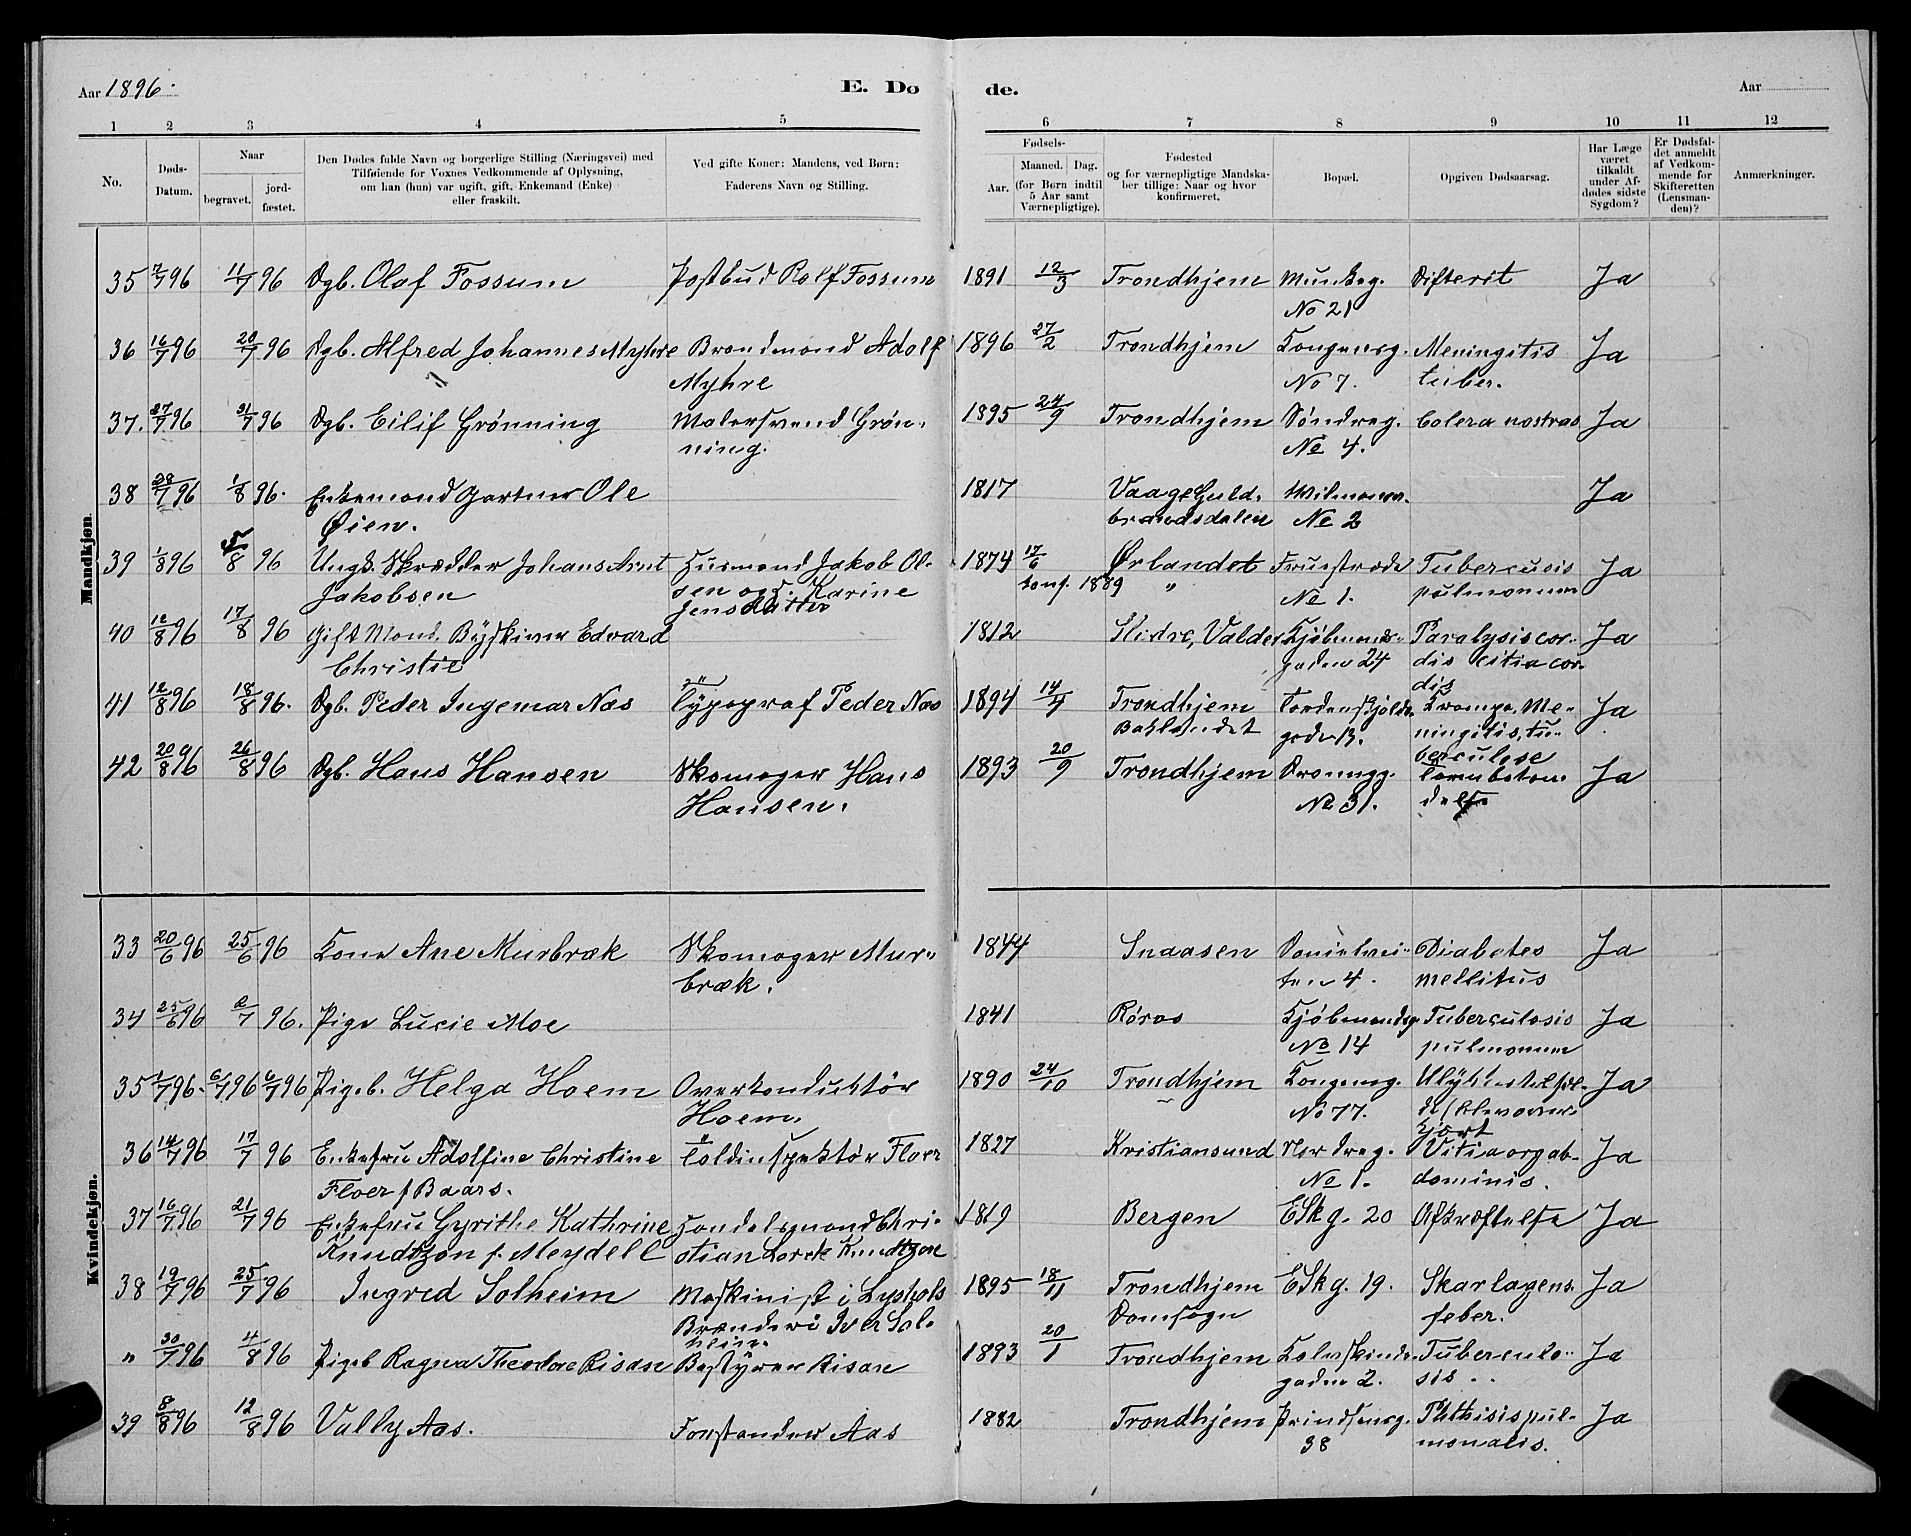 Aar 1896.
E. Dø
de.
Aar
1 2 3 4 5 6 7 8 9 10 11 12
No.
Døds-
Datum.
Naar
begravet.
jord-
fæstet.
Den Dødes fulde Navn og borgerlige Stilling (Næringsvei) med
Tilføiende for Voxnes Vedkommende af Oplysning,
om han (hun) var ugift, gift, Enkemand (Enke)
eller fraskilt.
Ved gifte Koner: Mandens, ved Børn:
Faderens Navn og Stilling.
Fødsels-
Aar.
Maaned.
Dag.
(for Børn indtil
5 Aar samt
Værnepligtige).
Fødested
og for værnepligtige Mandska-
ber tillige: Naar og hvor
konfirmeret.
Bopæl.
Opgiven Dødsaarsag.
Har Læge
været
tilkaldt
under Af-
dødes sidste
Sygdom?
Er Dødsfal-
det anmeldt
af Vedkom-
mende for
Skifteretten
(Lensman-
den)?
Anmærkninger.
Mandkjøn.
35 7/7 96 11/7 96 Dgb. Olaf Fossum Postbud Rolf Fossum 1891 12/3 Trondhjem Munkeg. Difterit Ja
No 21
36 16/7 96 20/7 96 Dgb. Alfred Johannes Myhre Brandmand Adolf 1896 27/2 Trondhjem Kongensg. Meningitis Ja
Myhre No 7. tuber.
37. 27/7 96 31/7 96 Dgb. Eilif Grønning Malersvend Grøn- 1895 24/9 Trondhjem Søndreg. Colera nostras Ja
ning. No 4.
38 28/7 96 1/8 96. Enkemand Gartner Ole 1817 Vaage Guld- Ja
Øien. brandsdalen No 2
39 1/8 96 5/8 96 Ungk. Skrædder Johans Arnt Husmand Jakob Ol- 1874 17/6 Ørlandet Fruestræde Tubercusis Ja
Jakobsen sen og Karine konf. 1889 " No 1. pulmonum
Jensdatter
40 12/8 96 17/8 96 Gift Mand. Byskriver Edvard 1812 Slidre, Valders Kjøbmands- Paralysis cor- Ja
Christie gaden 24 dis citia cor-
dis
41 12/8 96 18/8 96. Dgb. Peder Ingemar Næs Typograf Peder Næs 1894 14/4 Trondhjem Tordenskjolds- Krampe, Me- Ja
Baklandet gade 13. ningitis, tu-
berculose
42 20/8 96 26/8 96 Dgb. Hans Hansen Skomager Hans 1893 20/9 Trondhjem Dronngg. Tarmbetæn- Ja
Hansen. No 31. delse
Kvindekjøn.
33 20/6 96 25/6 96 Kone Ane Murbræk Skomager Mur- 1844 Snaasen Danielsvei- Diabetes Ja
bræk. ten 4. mellitus
34 25/6 96 2/7 96. Pige Lucie Moe 1841 Røros Kjøbmandsg. Tuberculosis Ja
No 14 pulmonum
35 1/7 96. 6/7 96 6/7 96 Pigeb. Helga Hoem Overkonduktør 1890 24/10 Trondhjem Kongensg. Ulykkestilfæl- Ja
Hoem. No 77. de
kjørt
36 14/7 96 17/7 96 Enkefru Adolfine Christine Toldinspektør Floer 1827 Kristiansund Nordreg. Vitia org ab- Ja
Floer f Baars. No 1. dominis.
37 16/7 96 21/7 96 Enkefru Gyrithe Kathrine Handelsmand Chri- 1819 Bergen ESkg. 20 Afkræftelse Ja
Knudtzon f. Meydell stian Lorck Knudtzon
38 19/7 96 25/7 96 Ingred Solheim Maskinist i Lysholms 1895 18/11 Trondhjem ESkg. 19. Skarlagens- Ja
Brænderi Iver Sol- Domsogn feber.
heim.
" 30/7 96 4/8 96 Pigeb Ragna Theodora Risan Bestyrer Risan 1893 20/1 Trondhjem Kalvskinds- Tuberculo- Ja
gaden 2. sis
39 8/8 96 12/8 96 Vally Aas. Forstander Aas 1882 Trondhjem Prindsensg. Phthisis pul- Ja
38 monalis.